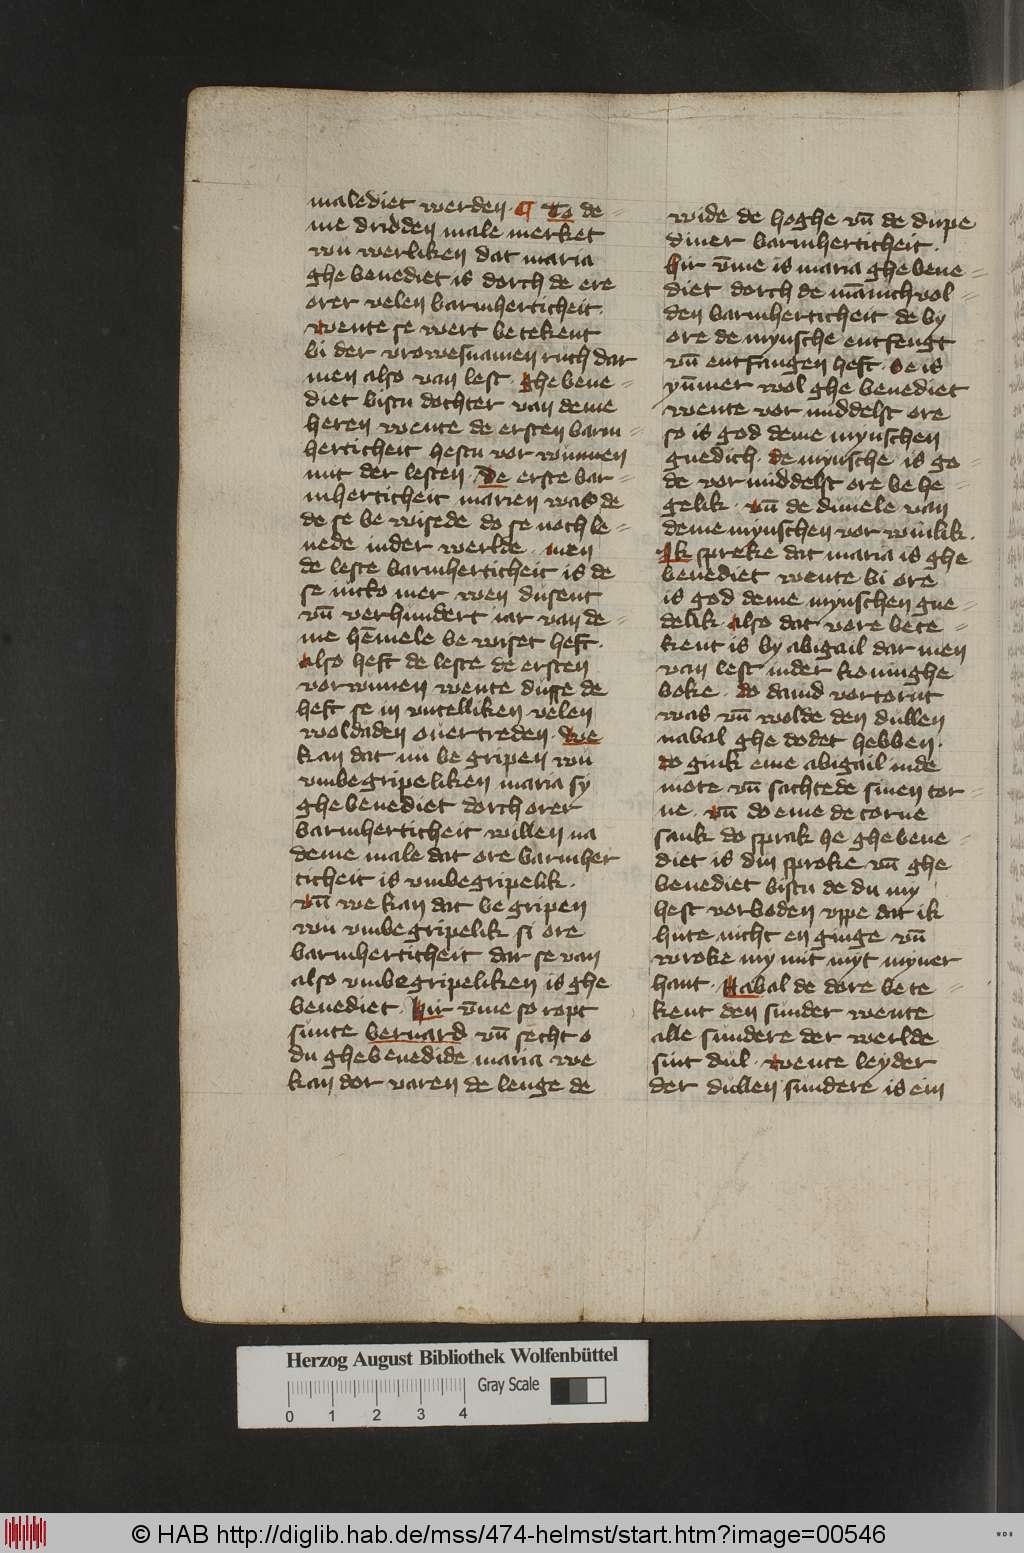 maledict werden · ¶ To de=
me dridden male merket
wu werliken dat maria
ghe benediet is dorch de ere
orer velen barmherticheit ·
wente se wert be tekent
bi der vrowesnamen ruth dar
men also van lest · ghe bene=
diet bistu dochter van deme
heren wente de ersten barm=
herticheit hestu vor wunnen
mit der lesten · De erste bar=
mherticheit marien was de
de se be wisede do se noch le=
uede inder werlde · men
de leste barmherticheit is de
se nicko mer wen dusent
vn̄ verhundert iar van de=
me hēmele be wiset heft ·
also heft de leste de ersten
vorwunen wente dusse de
heft se in vntelliken velen
woldaden ouertreden · We
kan dat nu be gripen wu
vmbegripeliken maria sy
ghe benediet dorch orer
barmherticheit willen na
deme male dat ore barmher
ticheit is vmbegripelik ·
vn̄ we kan dat be gripen
wu vmbe gripelik si ore
barmherticheit dar se van
also vmbegripeliken is ghe
benediet · Hir v̄me so ropt
sunte bernard vn̄ secht o
du ghebenedide maria we
kan dor varen de lenge de
wide de hoghe vn̄ de dupe
diner barmherticheit ·
Hir v̄me is maria ghe bene=
diet dorch de mānichvol=
den barmherticheit de by
ore de mynsche entfengt
vn̄ entfangen heft · Se is
yūmer wol ghe benediet
wente vor middelst ore
so is god deme mynschen
gnedich · de mynsche is go=
de vor middelst ore be he=
gelik · vn̄ de duuele van
deme mynschen vor winlik ·
Ik spreke dat maria is ghe
benediet wente bi ore
is god deme mynschen gne=
delik · also dat vore bete=
kent is by abigail dar men
van lest inder koninghe
boke · do dauid vortornt
was vn̄ wolde den dullen
nabal ghe dodet hebben ·
do gink eme abigail inde
mote vn̄ sachtede sinen tor=
ne · vn̄ do eme de torne
sank do sprak he ghe bene=
diet is din sproke vn̄ ghe
benediet bistu de du my
hest vorboden vppe dat ik
hute nicht en ginge vn̄
wroke my mit myt myner
hant · Nabal de dore bete=
kent den sunder wente
alle sundere der werlde
sint dul · wente leyder
der dullen sundere is ein
Herzog August Bibliothek Wolfenbüttel
Gray Scale
0 1 2 3 4
© HAB http://diglib.hab.de/mss/474-helmst/start.htm?image=00546